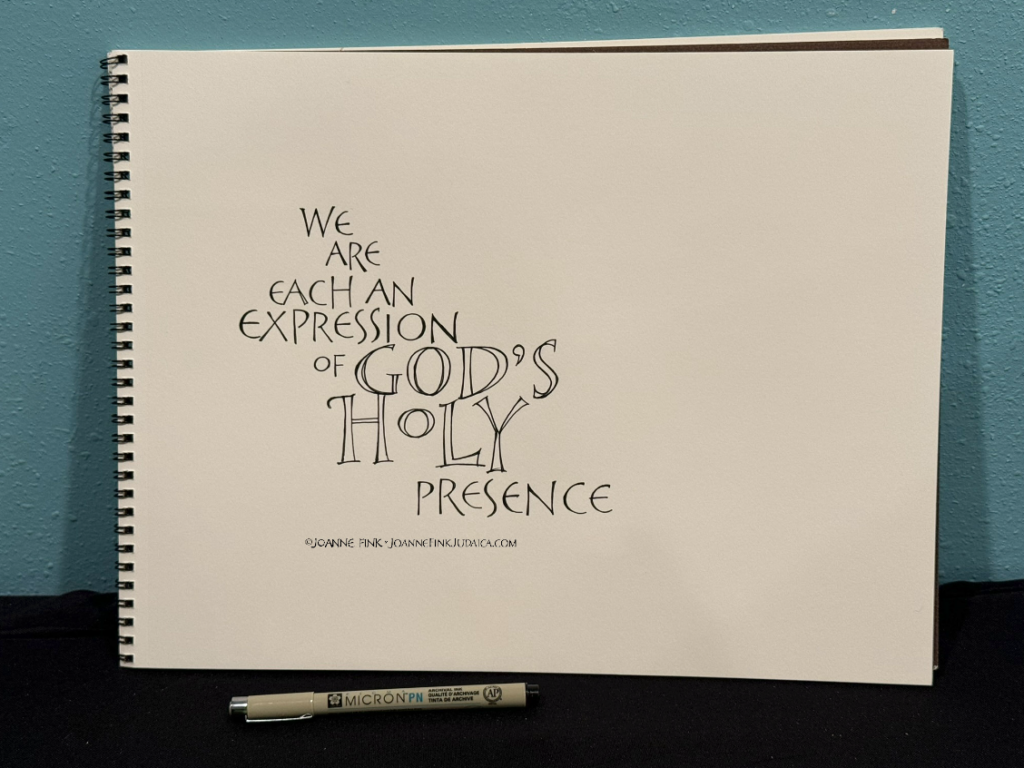 WE
ARE
EACH AN
EXPRESSION
OF GOD'S
HOLY
PRESENCE
©JOANNE FINK · JOANNEFINKJUDAICA.COM
MICRON PN
ARCHIVAL INK
QUALITÉ D'ARCHIVAGE
TINTA DE ARCHIVE
AP